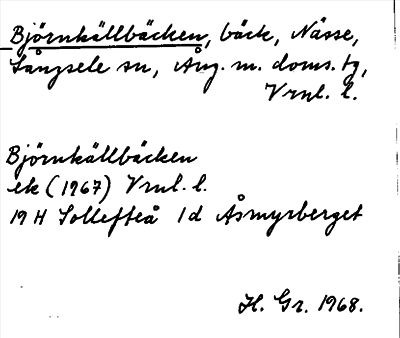 Björnkällbäcken, bäck, Nässe,
Långsele sn, Ång. m. doms. tg,
Vrnl. l.
Björnkällbäcken
ek (1967) Vrnl. l.
19 H Sollefteå 1 d Åsmyrberget
H. Gr. 1968.